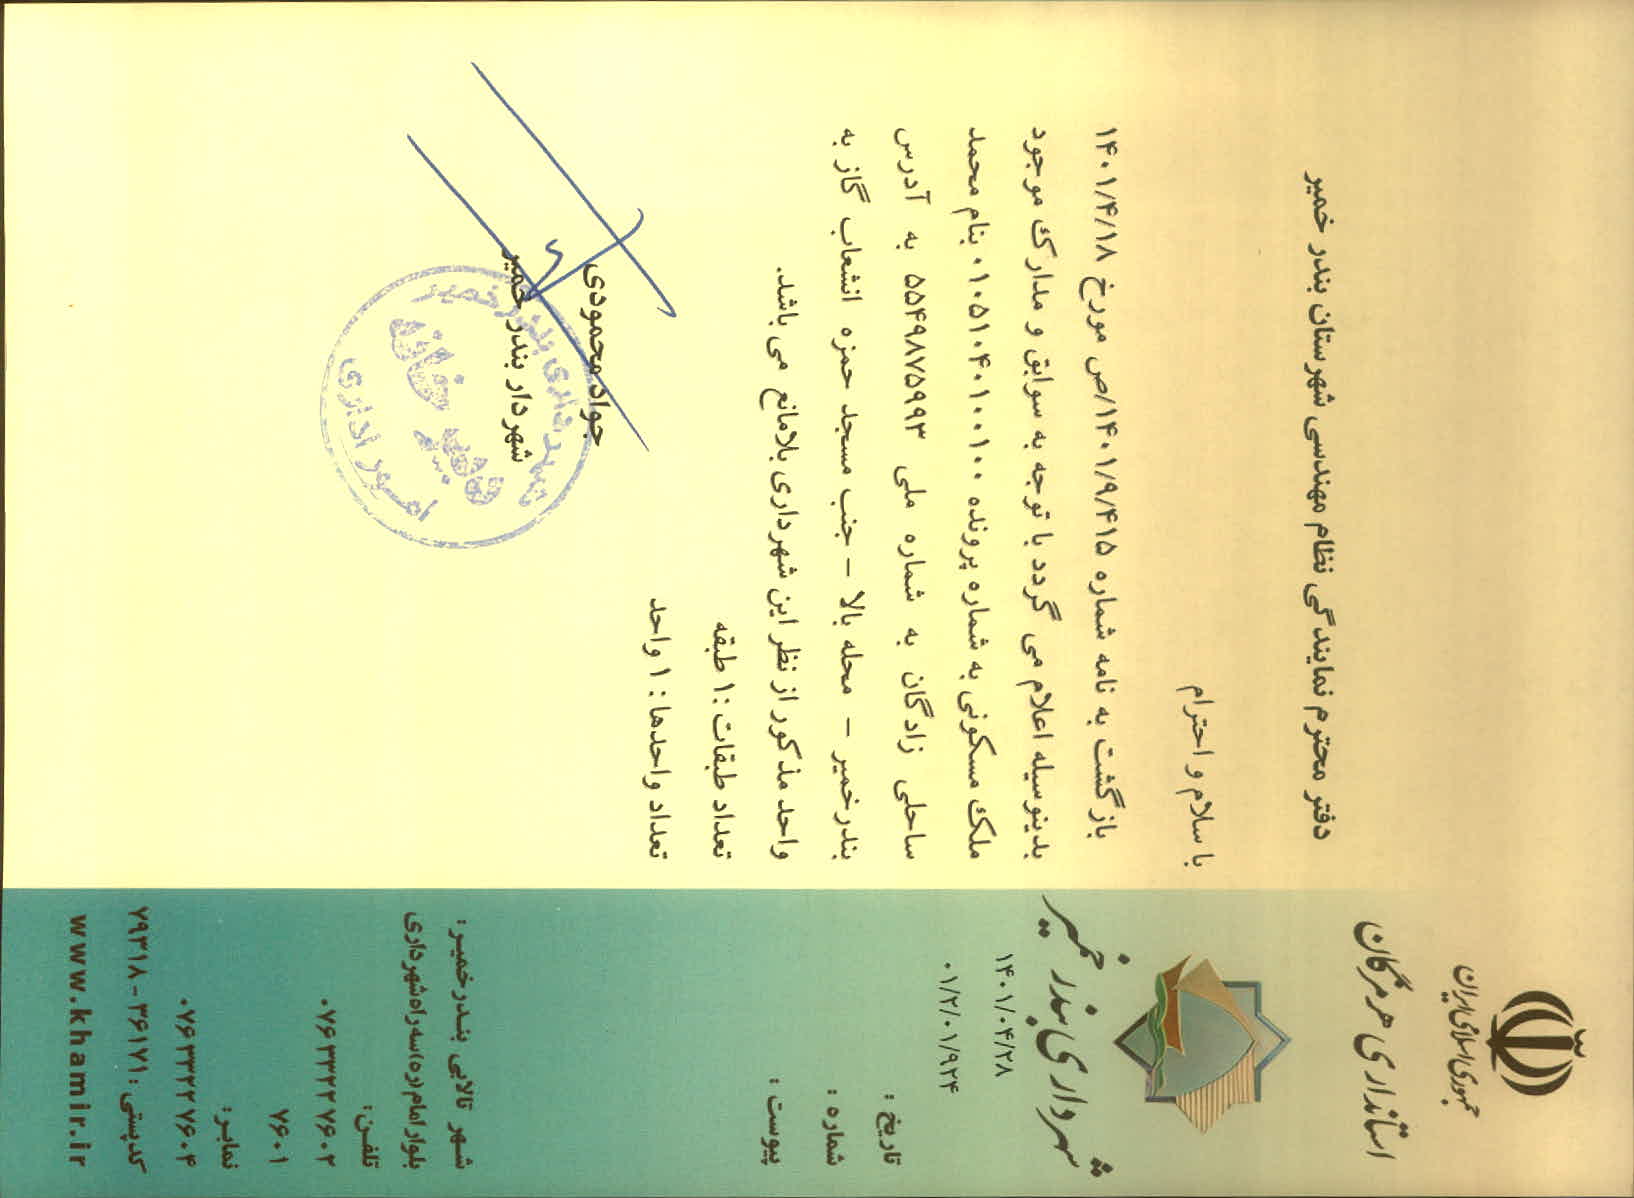 جمهوری اسلامی ایران
استانداری هرمزگان
شهرداری بندر خمیر
۱۴۰۱/۰۴/۲۸
۰۱/۲/۰۱/۹۲۴
تاریخ :
شماره :
پیوست :
دفتر محترم نمایندگی نظام مهندسی شهرستان بندر خمیر
با سلام و احترام
بازگشت به نامه شماره ۱۴۰۱/۹/۴۱۵/ص مورخ ۱۴۰۱/۴/۱۸
بدینوسیله اعلام می گردد با توجه به سوابق و مدارک موجود
ملک مسکونی به شماره پرونده ۰۱۰۵۱۰۴۰۱۰۰۱۰۰ بنام محمد
ساحلی زادگان به شماره ملی ۵۵۴۹۸۷۵۹۹۳ به آدرس
بندرخمیر – محله بالا – جنب مسجد حمزه انشعاب گاز به
واحد مذکور از نظر این شهرداری بلامانع می باشد.
تعداد طبقات :۱ طبقه
تعداد واحدها : ۱ واحد
جواد محمودی
شهردار بندر خمیر
شهرداری بندر خمیر
دبیرخانه
امور اداری
شهر تالابی بندرخمیر:
بلوار امام(ره)سه راه شهرداری
تلفن:
۰۷۶۳۳۲۲۷۶۰۲
۷۶۰۱
نمابر:
۰۷۶۳۳۲۲۷۶۰۴
کدپستی : ۳۶۱۷۱ – ۷۹۳۱۸
www.khamir.ir